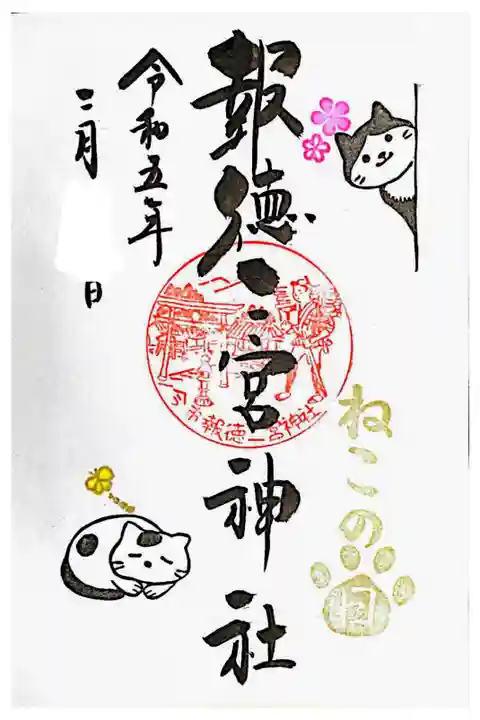 報徳二宮神社
令和五年
二月 日
今市報徳二宮神社
ねこの日